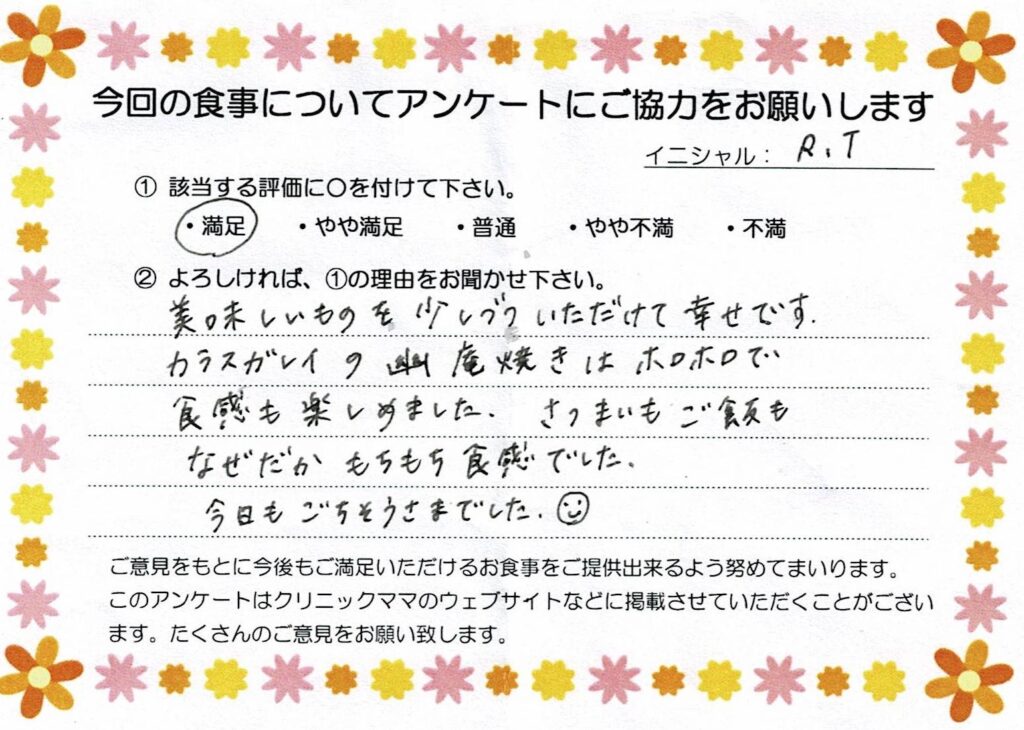 今回の食事についてアンケートにご協力をお願いします
イニシャル： R.T
① 該当する評価に〇を付けて下さい。
・満足 ・やや満足 ・普通 ・やや不満 ・不満
② よろしければ、①の理由をお聞かせ下さい。
美味しいものを少しづついただけて幸せです.
カラスガレイの幽庵焼きはホロホロで
食感も楽しめました. さつまいもご飯も
なぜだかもちもち食感でした.
今日もごちそうさまでした.
ご意見をもとに今後もご満足いただけるお食事をご提供出来るよう努めてまいります。
このアンケートはクリニックママのウェブサイトなどに掲載させていただくことがござい
ます。たくさんのご意見をお願い致します。